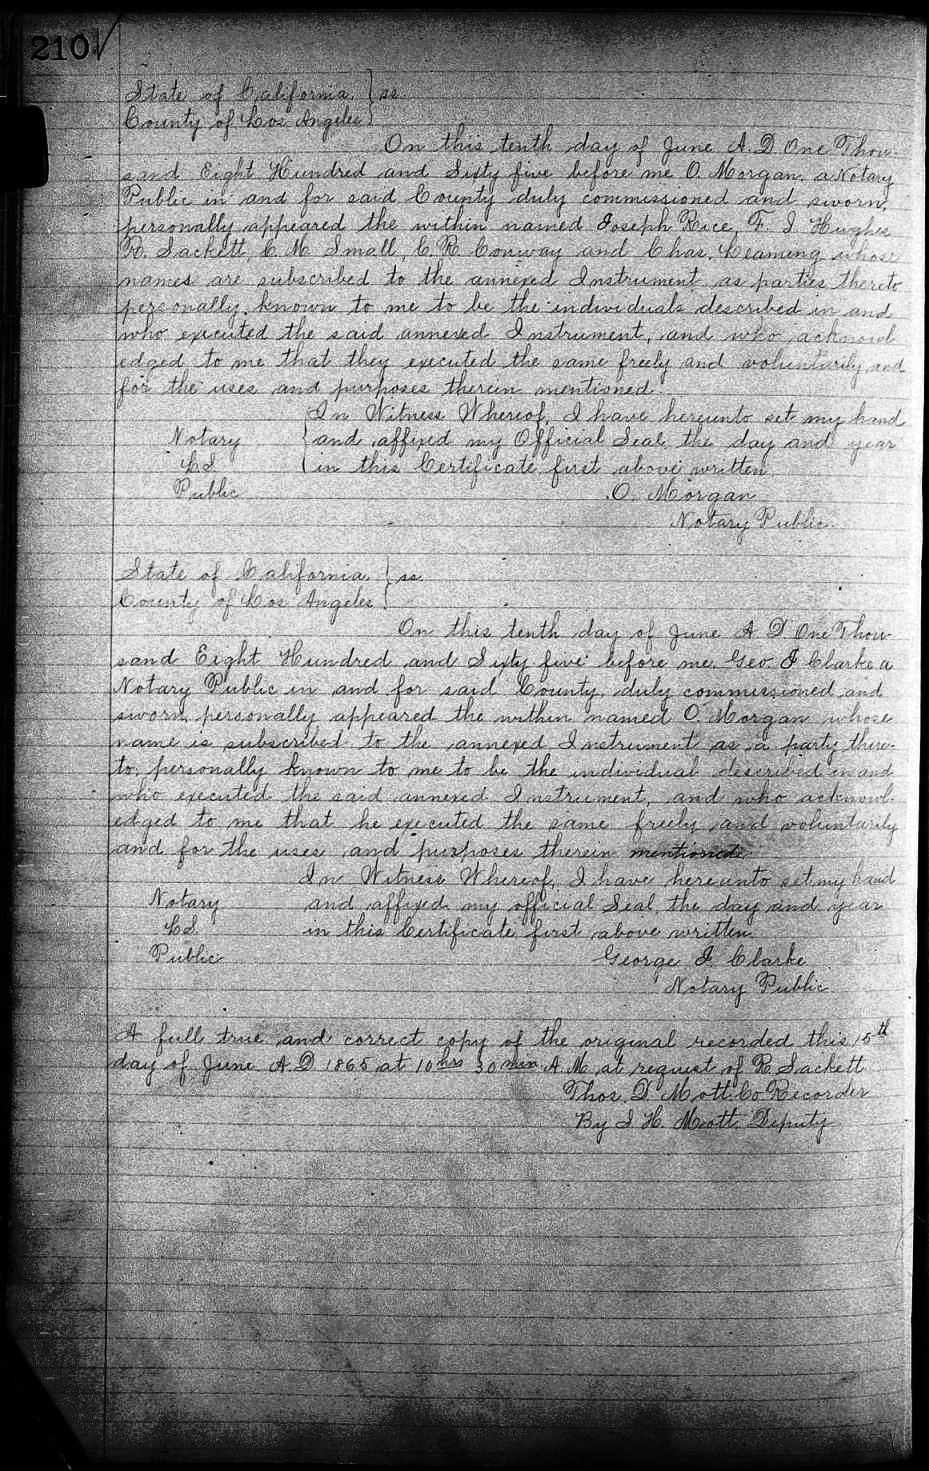 210
State of California } ss
County of Los Angeles
On this tenth day of June A. D. One Thou-
sand Eight Hundred and Sixty five before me O. Morgan. a Notary
Public in and for said County duly commissioned and sworn,
personally appeared the within named Joseph Rice, F. J. Hughes
R. Sackett, C. M. Small, C. R. Conway and Chas. Leaming whose
names are subscribed to the annexed Instrument as parties thereto
personally known to me to be the individuals described in and
who executed the said annexed Instrument, and who acknowl
edged to me that they executed the same freely and voluntarily and
for the uses and purposes therein mentioned.
In Witness Whereof, I have hereunto set my hand
Notary { and affixed my Official Seal the day and year
LS { in this Certificate first above written
Public O. Morgan
Notary Public.
State of California } ss.
County of Los Angeles
On this tenth day of June A D One Thou
sand Eight Hundred and Sixty five before me, Geo. J. Clarke a
Notary Public in and for said County, duly commissioned and
sworn, personally appeared the within named O. Morgan whose
name is subscribed to the annexed Instrument as a party there-
to, personally known to me to be the individual described in and
who executed the said annexed Instrument, and who acknowl-
edged to me that he executed the same freely and voluntarily
and for the uses and purposes therein mentioned
In Witness Whereof, I have hereunto set my hand
Notary and affixed my official Seal, the day and year
LS. in this Certificate first above written.
Public George J. Clarke
Notary Public
A full true and correct copy of the original recorded this 15th
day of June A. D 1865 at 10 hrs 30 min A M at request of R. Sackett
Thos. D. Mott Co Recorder
By J. H. Mott Deputy